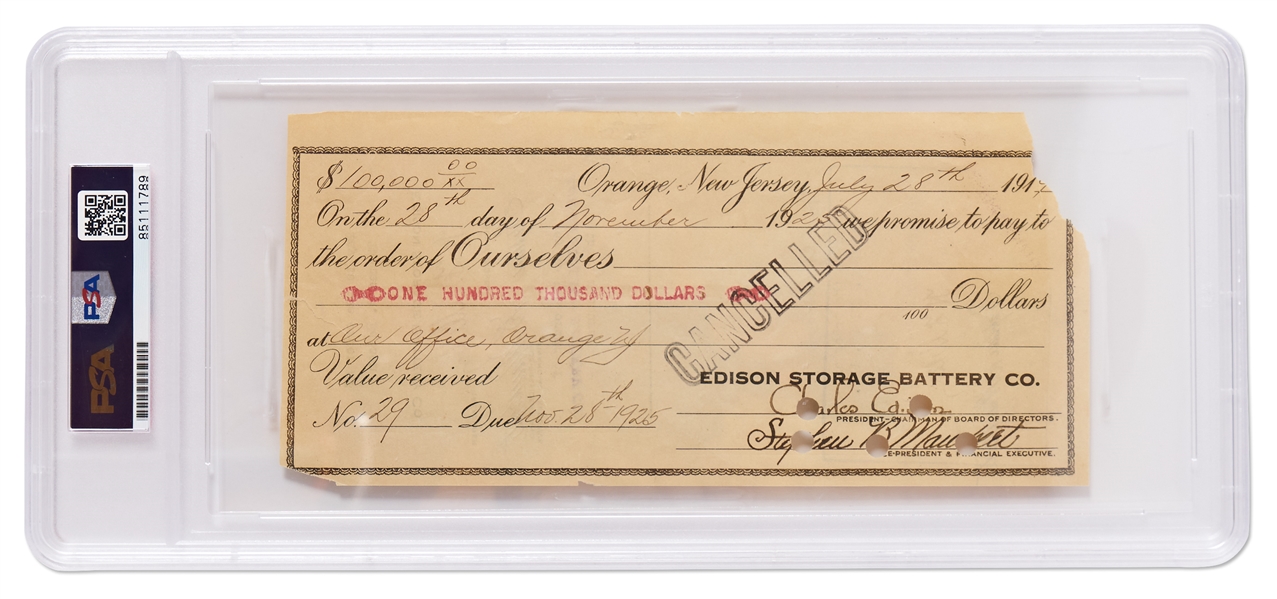 $100,000 00/XX Orange, New Jersey, July 28th 191
On the 28th day of November 192 we promise to pay to
the order of Ourselves
ONE HUNDRED THOUSAND DOLLARS /100 Dollars
at Our Office, Orange NJ
CANCELLED
Value received
EDISON STORAGE BATTERY CO.
No. 29 Due Nov. 28th 1925
Charles Edison
PRESIDENT-CHAIRMAN OF BOARD OF DIRECTORS.
Stephen B.
E-PRESIDENT & FINANCIAL EXECUTIVE.
85111789
PSA
PSA